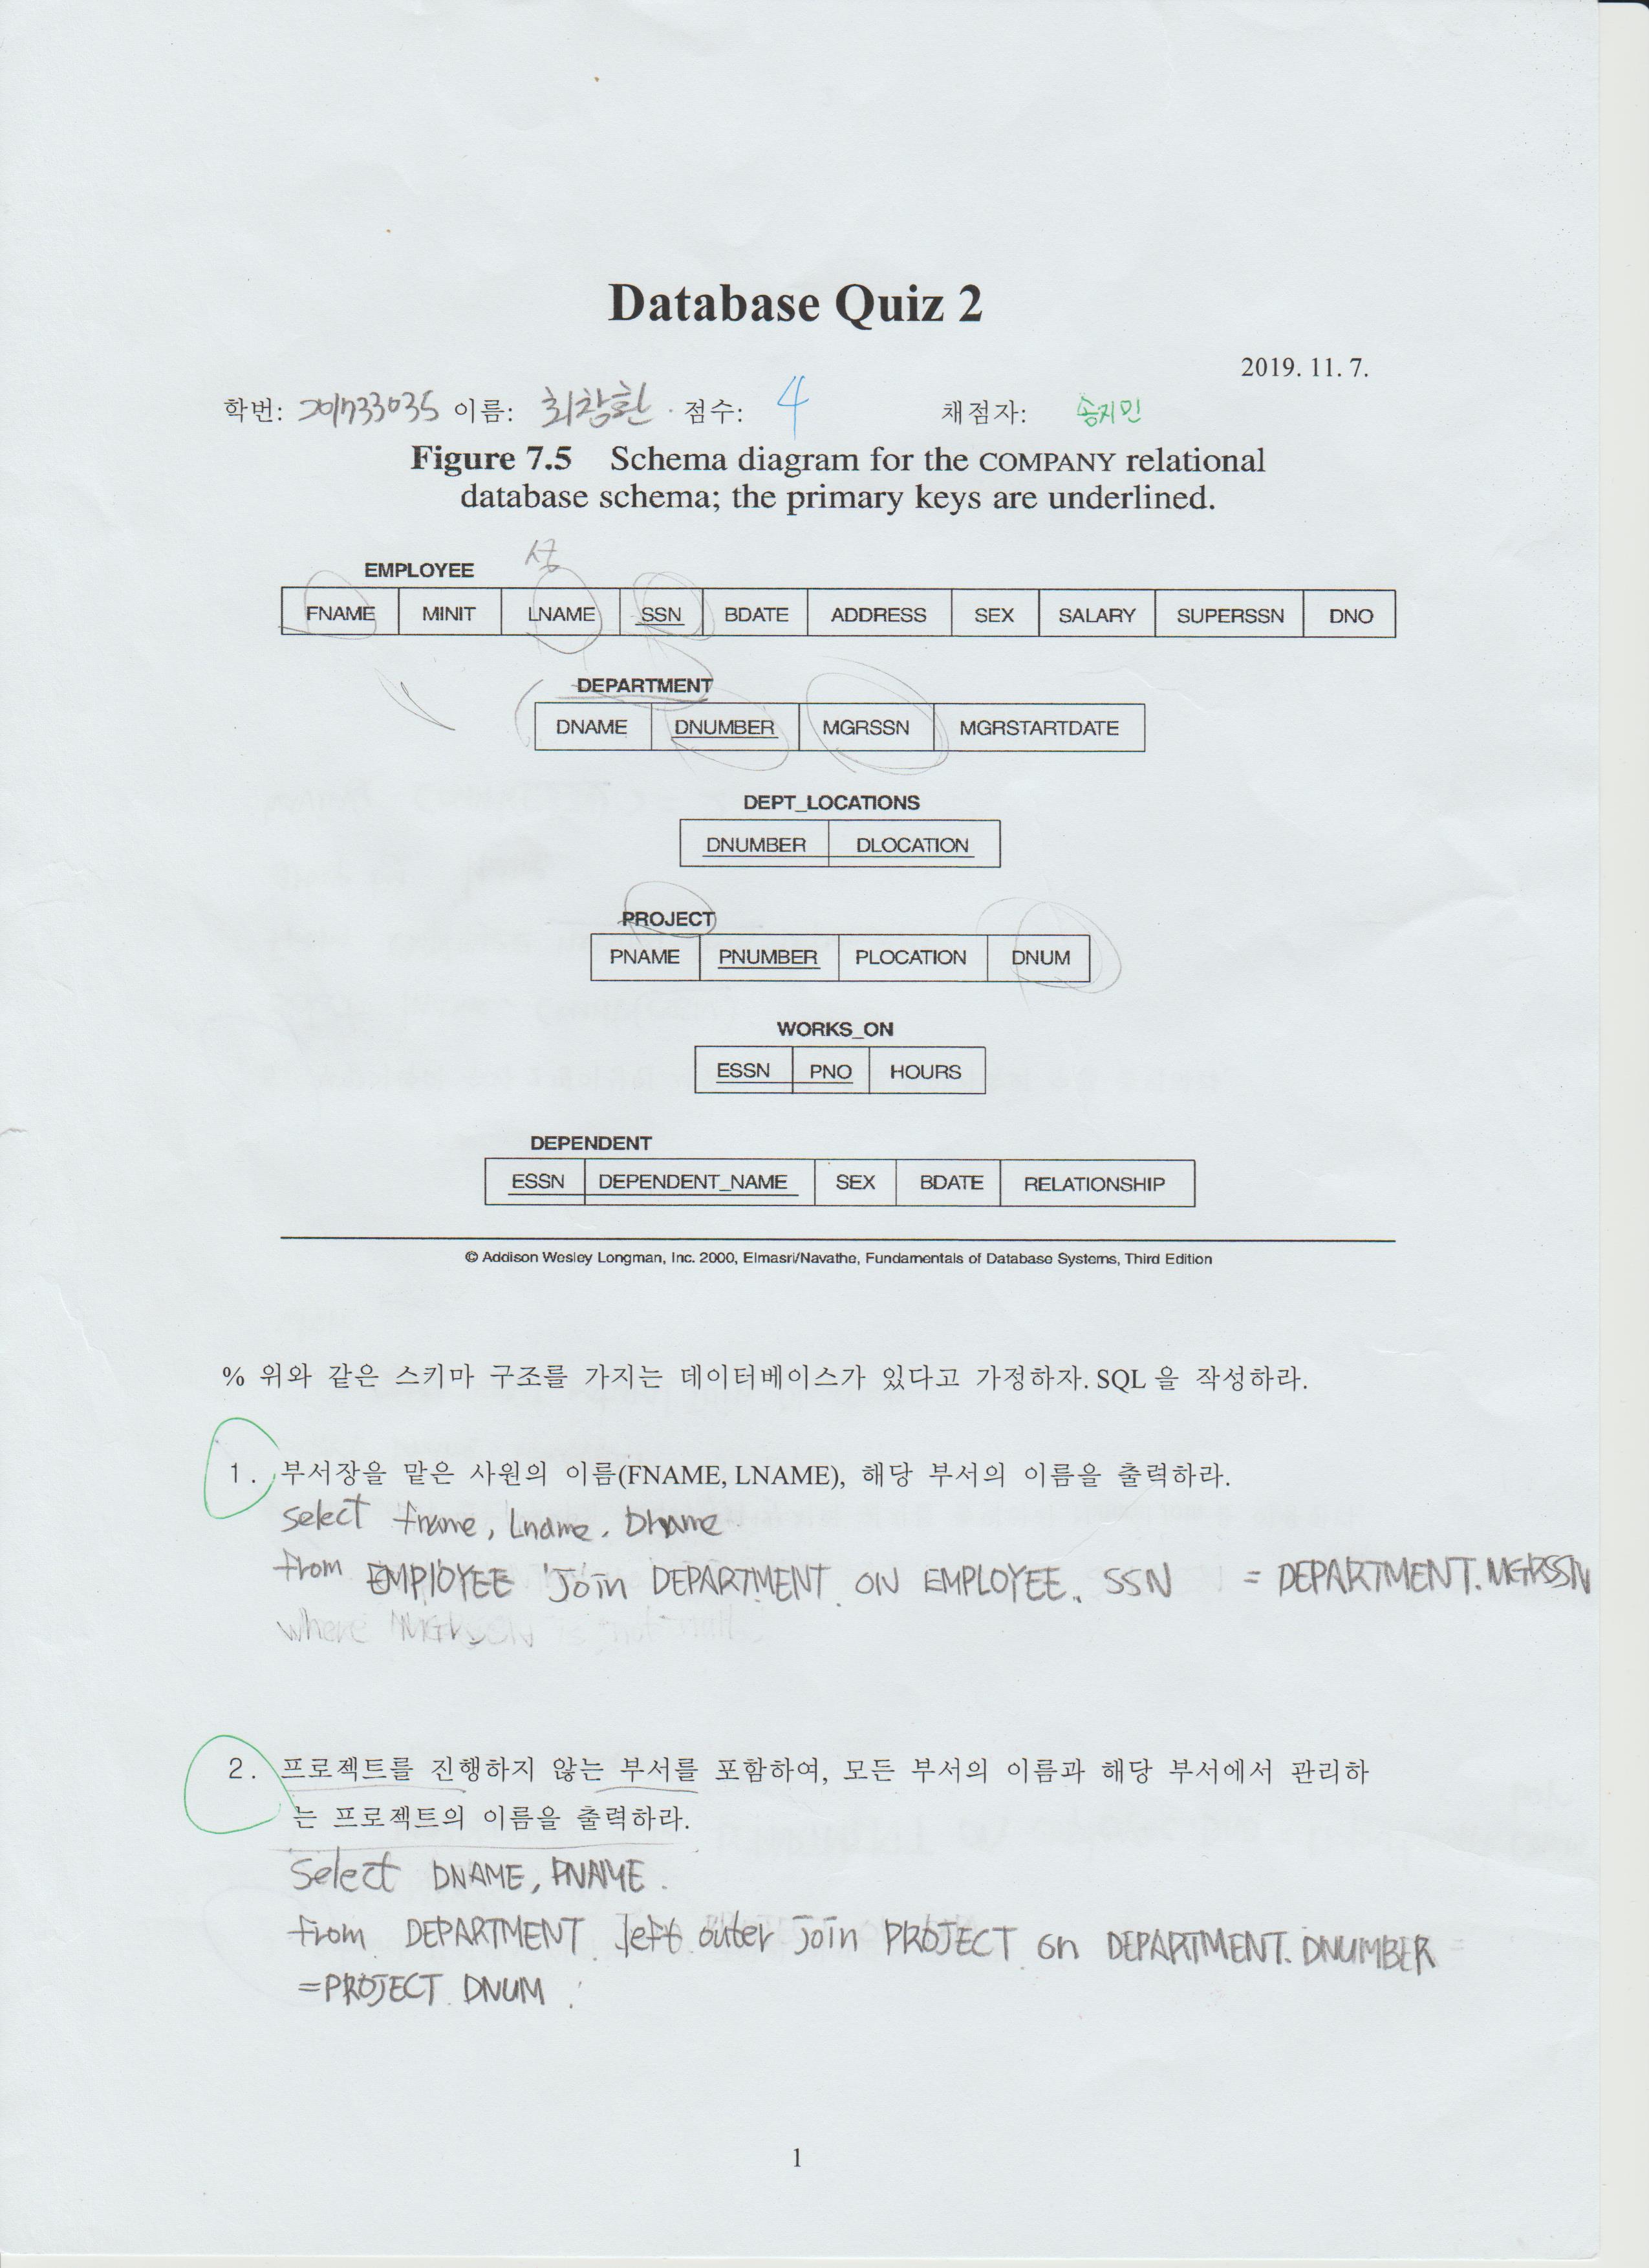 Database Quiz 2
2019. 11. 7.
학번: 201733035 이름: 최창환 점수: 4 채점자: 송지민
Figure 7.5 Schema diagram for the COMPANY relational
database schema; the primary keys are underlined.
성
EMPLOYEE
FNAME MINIT LNAME SSN BDATE ADDRESS SEX SALARY SUPERSSN DNO
DEPARTMENT
DNAME DNUMBER MGRSSN MGRSTARTDATE
DEPT_LOCATIONS
DNUMBER DLOCATION
PROJECT
PNAME PNUMBER PLOCATION DNUM
WORKS_ON
ESSN PNO HOURS
DEPENDENT
ESSN DEPENDENT_NAME SEX BDATE RELATIONSHIP
© Addison Wesley Longman, Inc. 2000, Elmasri/Navathe, Fundamentals of Database Systems, Third Edition
% 위와 같은 스키마 구조를 가지는 데이터베이스가 있다고 가정하자. SQL 을 작성하라.
1. 부서장을 맡은 사원의 이름(FNAME, LNAME), 해당 부서의 이름을 출력하라.
select fname, Lname, Dname
from EMPlOYEE Join DEPARTMENT ON EMPLOYEE. SSN = DEPARTMENT.MGRSSN
where MGRSSN is not null
2. 프로젝트를 진행하지 않는 부서를 포함하여, 모든 부서의 이름과 해당 부서에서 관리하
는 프로젝트의 이름을 출력하라.
Select DNAME, PNAME
from DEPARTMENT left outer join PROJECT on DEPARTMENT. DNUMBER
=PROJECT. DNUM ;
1